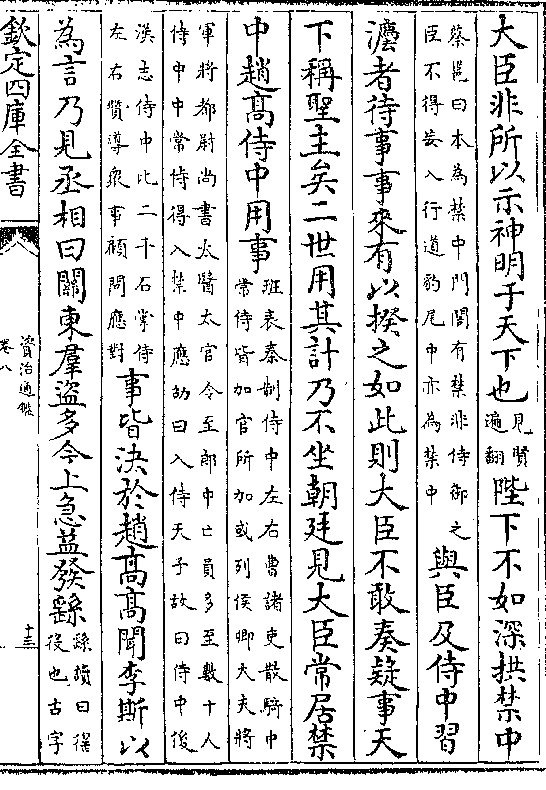 大臣非所以示神明于天下也見賢遍翻陛下不如深拱禁中
蔡邕曰本為禁中門閤有禁非侍御之
臣不得妄入行道豹尾中亦為禁中
與臣及侍中習
灋者待事事來有以揆之如此則大臣不敢奏疑事天
下稱聖主矣二世用其計乃不坐朝廷見大臣常居禁
中趙高侍中用事
班表秦制侍中左右曹諸吏散騎中
常侍皆加官所加或列侯卿大夫將
軍將都尉尚書太醫太官令至郎中亡員多至數十人
侍中中常侍得入禁中應劭曰入侍天子故曰侍中後
漢志侍中比二千石掌侍
左右贊導衆事顧問應對
事皆決於趙高高聞李斯以
為言乃見丞相曰關東羣盜多今上急益發繇
繇讀曰徭
役也古字
欽定四庫全書
資治通鑑
卷八
十三